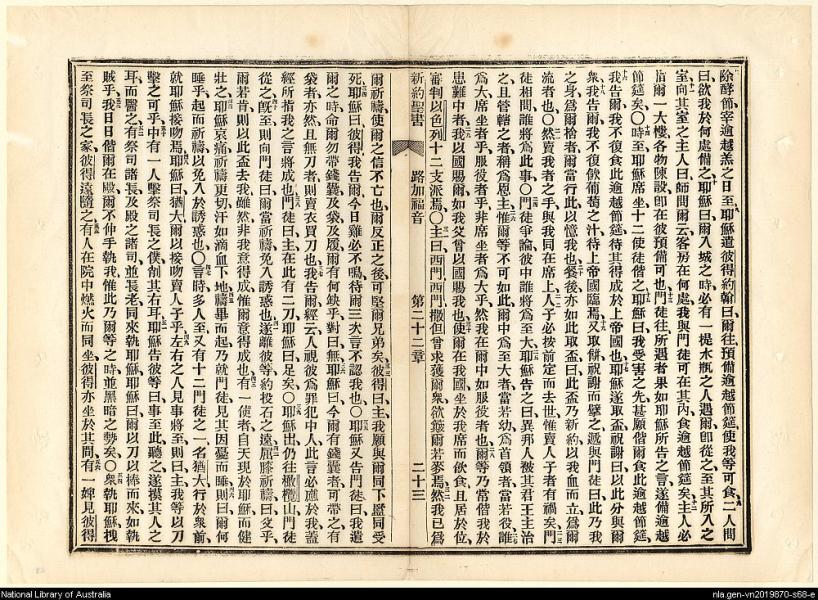 除酵節宰逾越羔之日至耶穌遣彼得約翰曰爾往預備逾越節筵使我等可食二人問
曰欲我於何處備之耶穌曰爾入城之時必有一提水瓶之人遇爾卽從之至其所入之
室向其室之主人曰師問爾云客房在何處我與門徒可在其內食逾越節筵矣主人必
指爾一大樓各物陳設卽在彼預備可也門徒往所遇者果如耶穌所告之言遂備逾越
節筵矣〇時至耶穌席坐十二使徒偕之耶穌曰我受害之先甚願偕爾食此逾越節筵
我告爾我不復食此逾越節筵待其得成於上帝國也耶穌遂取盃祝謝曰以此分與爾
衆我告爾我不復飲葡萄之汁待上帝國臨焉又取餅祝謝而擘之遞與門徒曰此乃我
之身爲爾捨者爾當行此以憶我也餐後亦如此取盃曰此盃乃新約以我血而立爲爾
流者也〇然賣我者之手與我同在席上人子必按前定而去世惟賣人子者有禍矣門
徒相問誰將爲此事〇門徒爭論彼中誰將爲至大耶穌告之曰異邦人被其君王主治
之且管轄之者稱爲恩主惟爾等不可如此爾中爲至大者當若幼爲首領者當若役誰
爲大席坐者乎服役者乎非席坐者爲大乎然我在爾中如服役者也爾等乃當偕我於
患難中者我以國賜爾如我父曾以國賜我也使爾在我國坐於我席而飲食且居於位
審判以色列十二支派焉〇主曰西門西門撒但曾求獲爾衆欲簸爾若麥焉然我已爲
新約聖書 路加福音 第二十二章 二十三
爾祈禱使爾之信不亡也爾反正之後可堅爾兄弟矣彼得曰主我願與爾同下監同受
死耶穌曰彼得我告爾今日雞必不鳴待爾三次言不認我也〇耶穌又告門徒曰我遣
爾之時命爾勿帶錢囊及袋及履爾有何缺乎對曰無耶穌曰今爾有錢囊者可帶之有
袋者亦然且無刀者則賣衣買刀也我告爾經云人視彼爲罪犯中人此言必應於我蓋
經所指我之言將成也門徒曰主在此有二刀耶穌曰足矣〇耶穌出仍往橄欖山門徒
從之旣至則向門徒曰爾當祈禱免入誘惑也遂離彼等約投石之遠屈膝祈禱曰父乎
爾若肯則以此盃去我雖然非我意得成惟爾意得成也有一使者自天現於耶穌而健
壯之耶穌哀痛祈禱更切汗如滴血下地禱畢而起乃就門徒見其因憂而睡則曰爾何
睡乎起而祈禱以免入於誘惑也〇言時多人至又有十二門徒之一名猶大行於衆前
就耶穌接吻焉耶穌曰猶大爾以接吻賣人子乎左右之人見事將至則曰主我等以刀
擊之可乎中有一人擊祭司長之僕削其右耳耶穌告彼等曰事至此聽之遂摸其人之
耳而醫之有祭司諸長及殿之諸司並長老同來執耶穌耶穌曰爾以刀以棒而來如執
賊乎我日日偕爾在殿爾不伸手執我惟此乃爾等之時並黑暗之勢矣〇衆執耶穌拽
至祭司長之家彼得遠隨之有人在院中燃火而同坐彼得亦坐於其間有一婢見彼得
National Library of Australia
nla.gen-vn2019870-s68-e